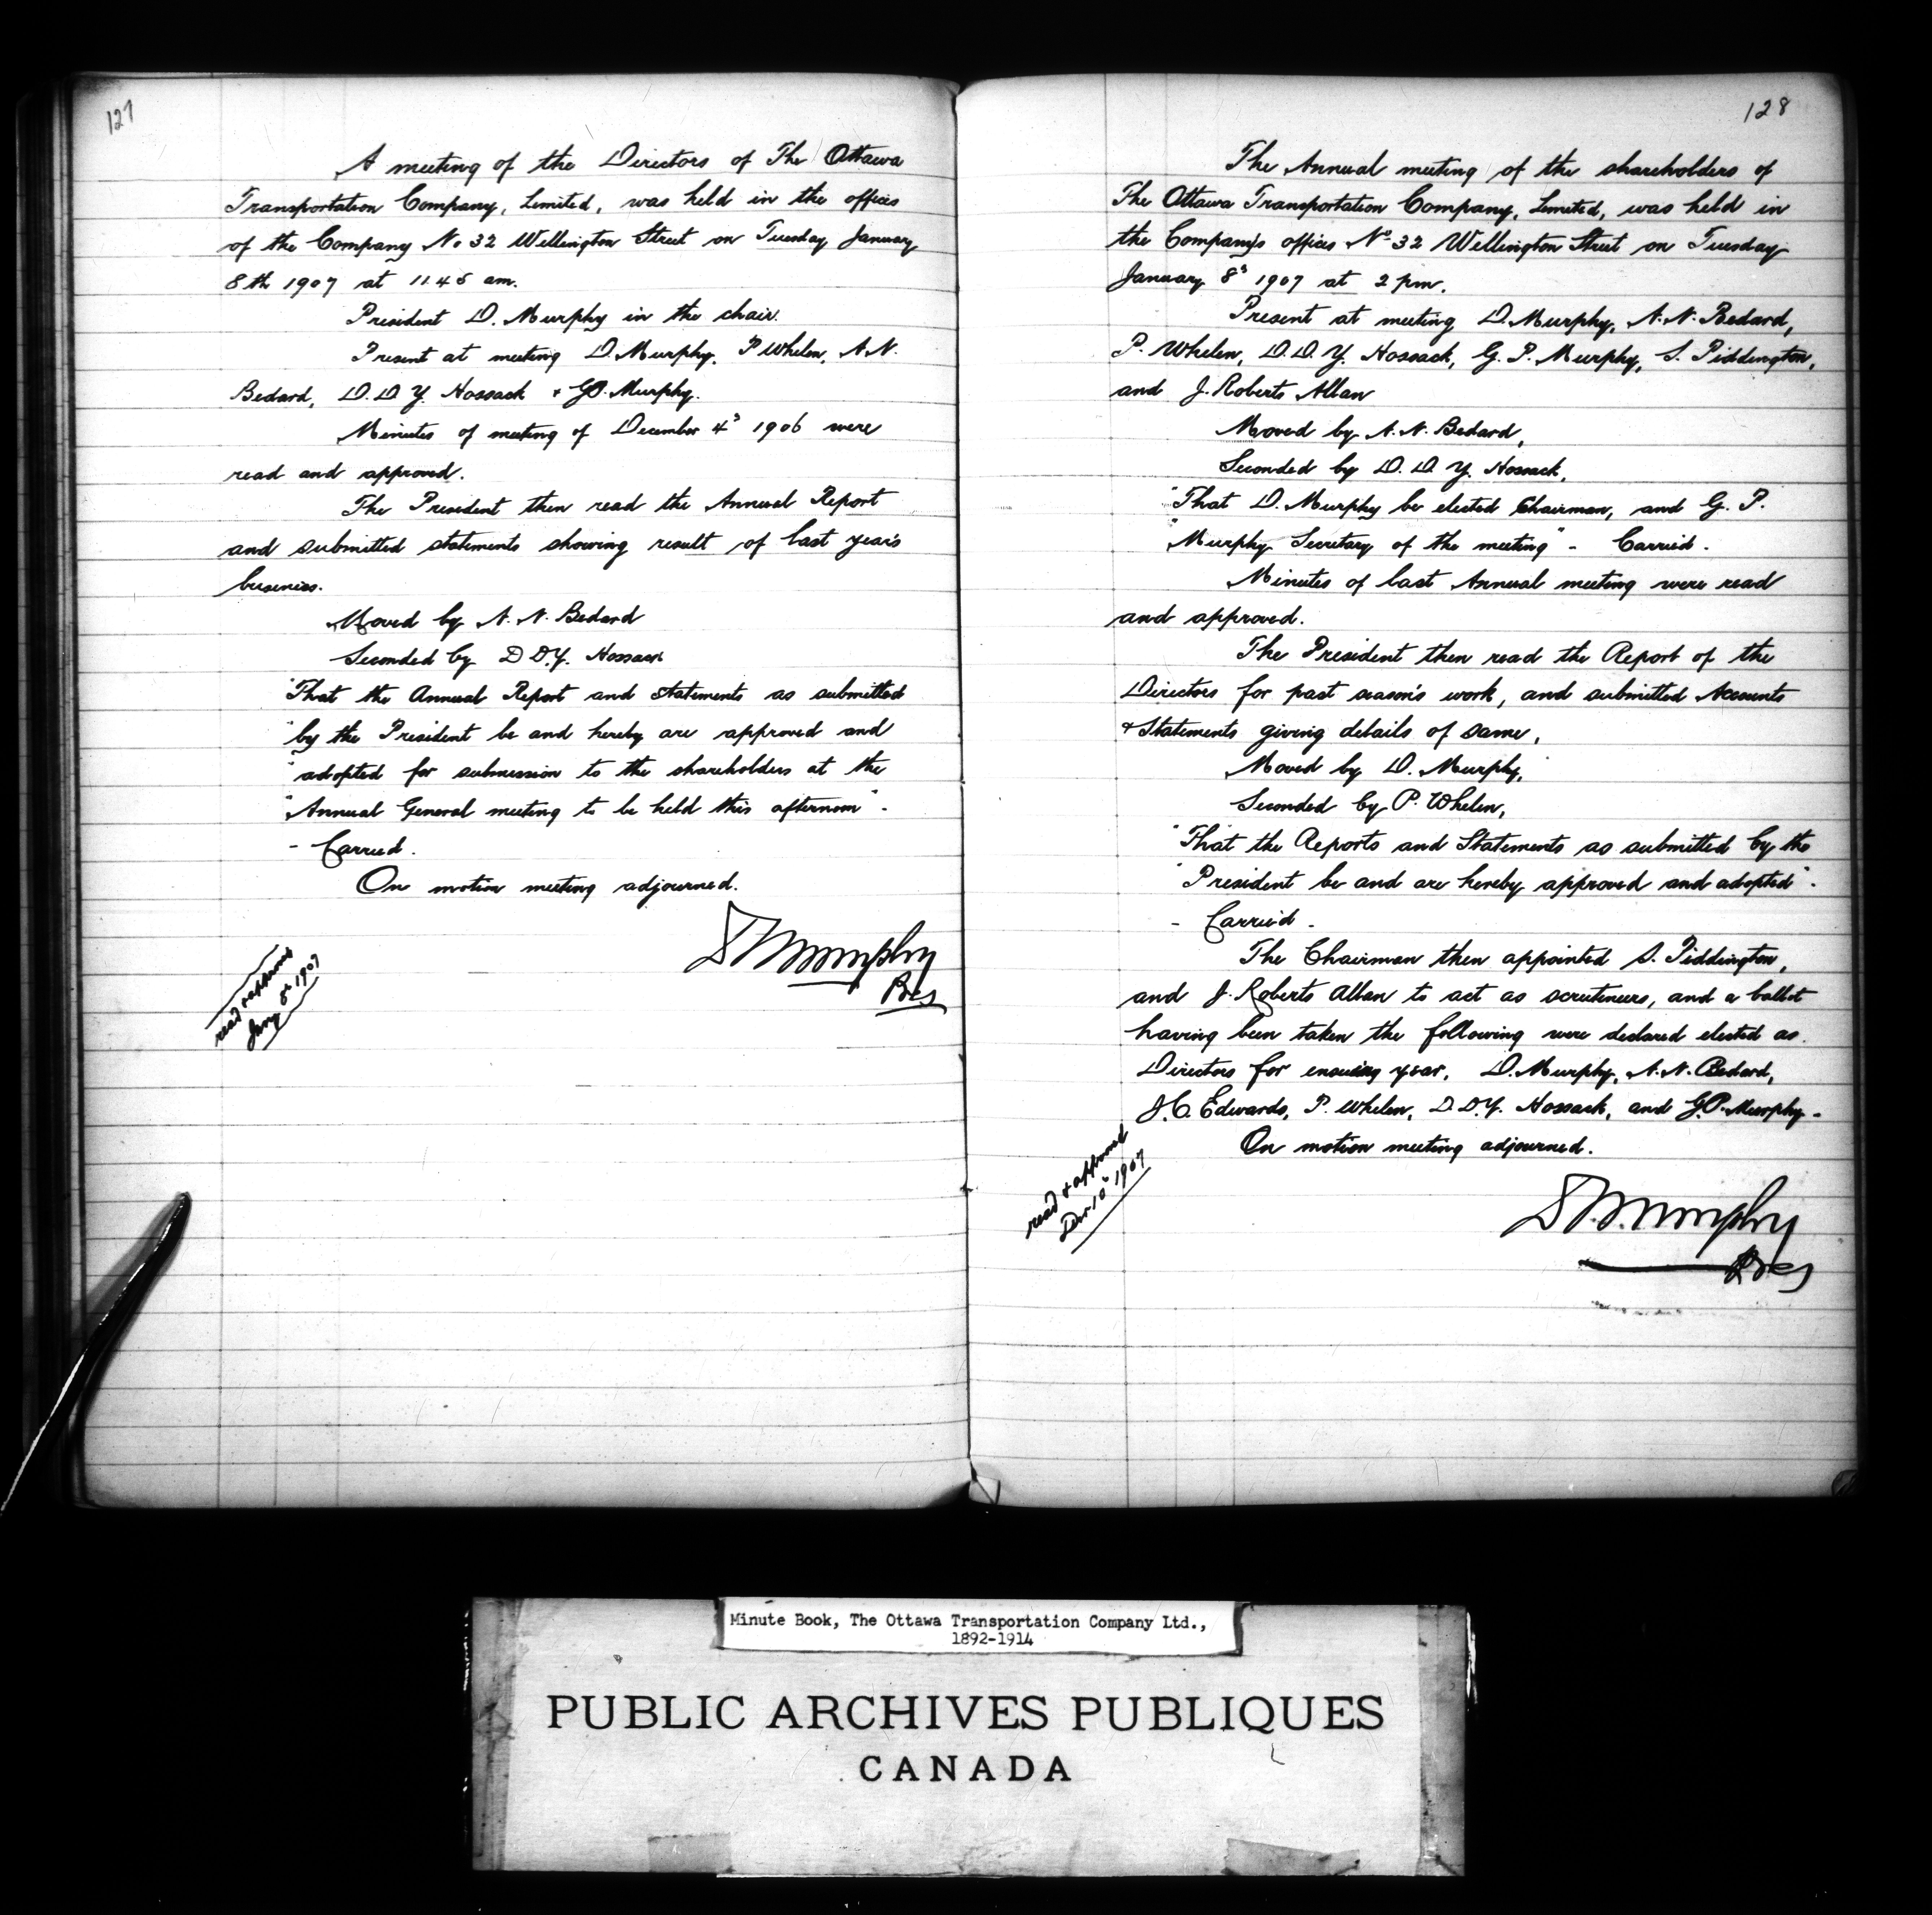 127
A meeting of the Directors of The Ottawa
Transportation Company, Limited, was held in the offices
of the Company No 32 Wellington Street on Tuesday January
8th 1907 at 11.45 am.
President D. Murphy in the chair.
Present at meeting D. Murphy, P Whelen, A.N.
Bedard, D.D.Y. Hossack & G.P. Murphy.
Minutes of meeting of December 4th 1906 were
read and approved.
The President then read the Annual Report
and submitted statements showing result of last year's
business.
Moved by N. N. Bedard
Seconded by D D.Y. Hossack
"That the Annual Report and statements as submitted
"by the President be and hereby are approved and
"adopted for submission to the shareholders at the
"Annual General meeting to be held this afternoon" -
- Carried.
On motion meeting adjourned.
D Murphy
Pres
read & approved
Jany 8th 1907
128
The Annual meeting of the shareholders of
The Ottawa Transportation Company, Limited, was held in
the Company's offices No 32 Wellington Street on Tuesday
January 8th 1907 at 2 pm.
Present at meeting D. Murphy, N.N. Bedard,
P. Whelen, D.D.Y. Hossack, G. P. Murphy, S. Piddington,
and J. Roberts Allan
Moved by N. N. Bedard,
Seconded by D. D. Y. Hossack,
"That D. Murphy be elected Chairman, and G. P.
"Murphy Secretary of the meeting" - Carried.
Minutes of last Annual meeting were read
and approved.
The President then read the Report of the
Directors for past season's work, and submitted Accounts
& Statements giving details of same,
Moved by D. Murphy,
Seconded by P. Whelen,
"That the Reports and Statements as submitted by the
"President be and are hereby approved and adopted".
- Carried -
The Chairman then appointed S. Piddington,
and J. Roberts Allan to act as scrutineers, and a ballot
having been taken the following were declared elected as
Directors for ensuing year. D. Murphy, N.N. Bedard,
J.C. Edwards, P. Whelen, D.D.Y. Hossack, and G.P. Murphy -
On motion meeting adjourned.
D. Murphy
Pres
read & approved
Dec 10th 1907
Minute Book, The Ottawa Transportation Company Ltd.,
1892-1914
PUBLIC ARCHIVES PUBLIQUES
CANADA